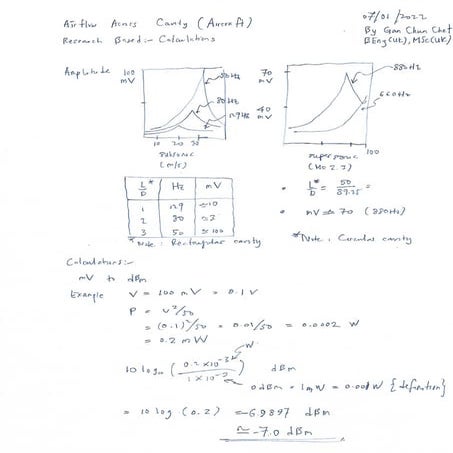 Airflow Across Cavity (Aircraft)
Research Based:- Calculations
07/01/2022
By Gan Chun Chet
BEng(UK), MSc(UK)
Amplitude 100 mV
50Hz
80Hz
129Hz
10 20 30
Subsonic
(m/s)
70 mV
40 mV
880Hz
660Hz
100
Supersonic
L/D* Hz mV
1 129 ≃10
2 80
3 50 ≃100
*Note: Rectangular cavity
L/D* = 50/ =
mV ≃ 70 (880Hz)
*Note: Circular cavity
Calculations:-
mV to dBm
Example V = 100 mV = 0.1 V
P = V²/50
= (0.1)²/50 = 0.01/50 = 0.0002 W
= 0.2 mW
10 log₁₀ (0.2 x 10⁻³ / 1 x 10⁻³) dBm
W
0 dBm = 1mW = 0.001W {definition}
= 10 log (0.2) = -6.9897 dBm
≃ -7.0 dBm